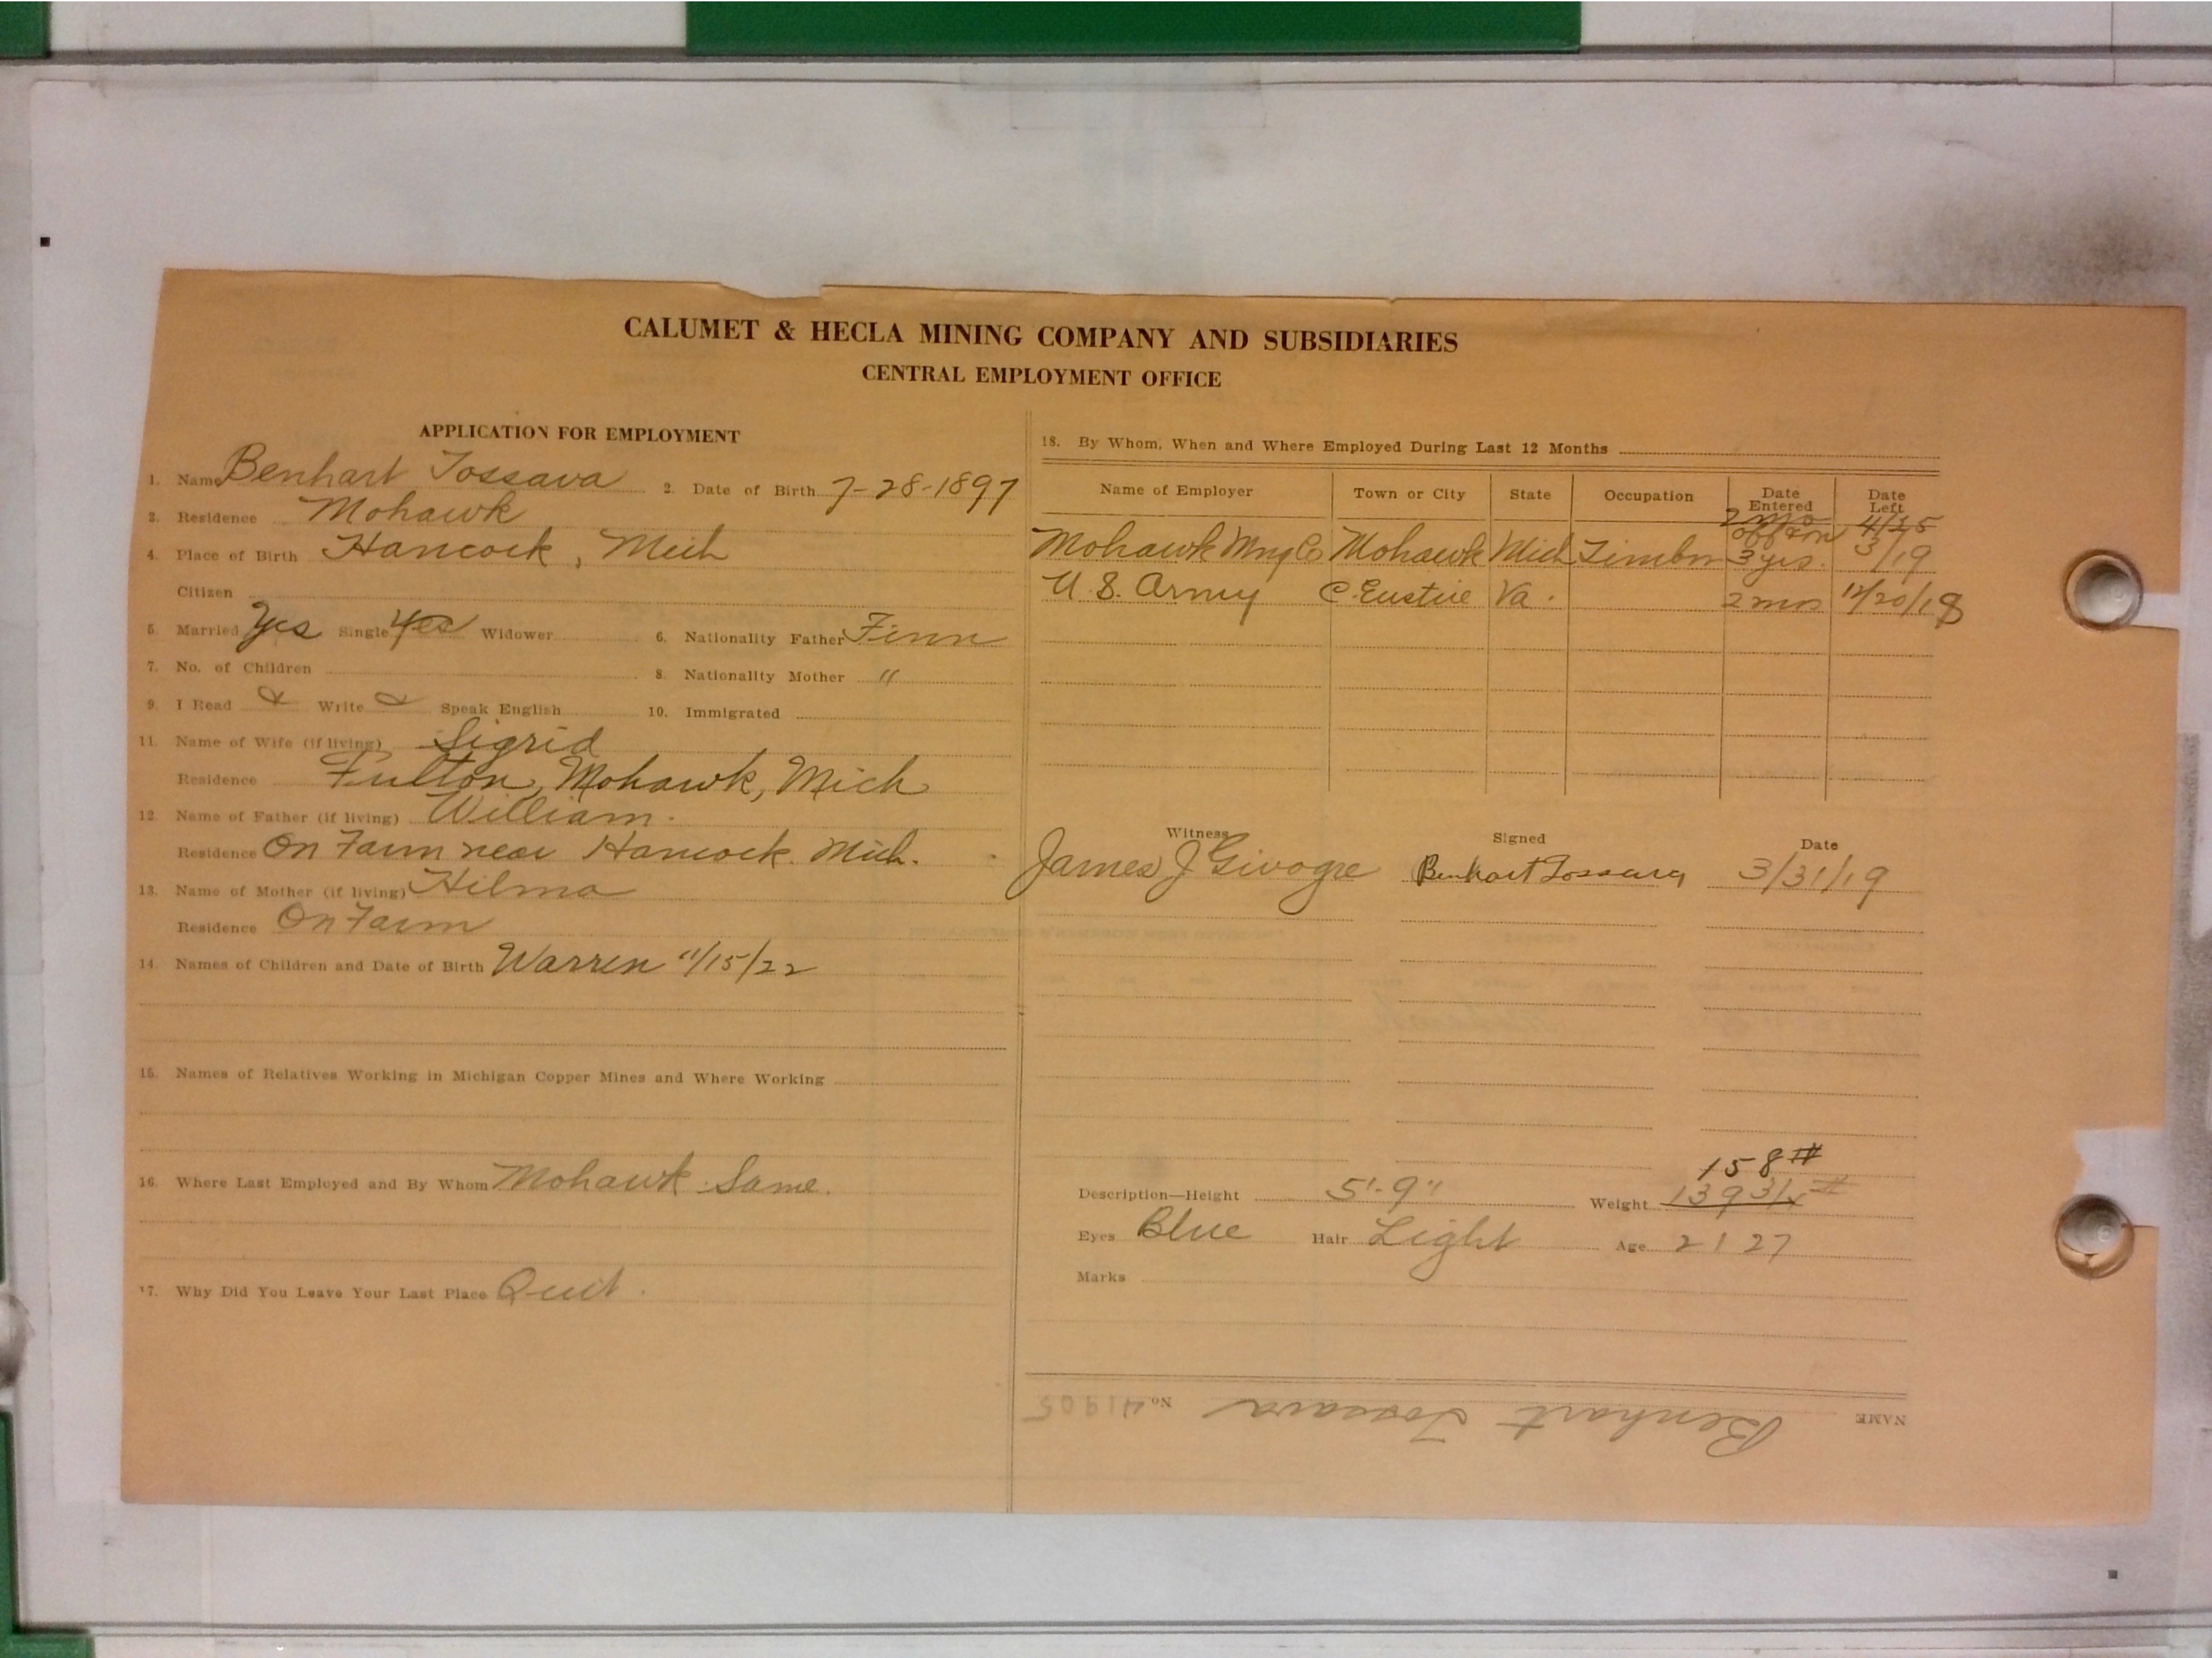 CALUMET & HECLA MINING COMPANY AND SUBSIDIARIES
CENTRAL EMPLOYMENT OFFICE
APPLICATION FOR EMPLOYMENT
1. Name Benhart Tossava 2. Date of Birth 7-28-1897
3. Residence Mohawk
4. Place of Birth Hancock, Mich
Citizen
5. Married Yes Single Yes Widower 6. Nationality Father Finn
7. No. of Children 8. Nationality Mother "
9. I Read & Write & Speak English 10. Immigrated
11. Name of Wife (if living) Sigrid
Residence Fulton, Mohawk, Mich
12. Name of Father (if living) William.
Residence On Farm near Hancock. Mich.
13. Name of Mother (if living) Hilma
Residence On Farm
14. Names of Children and Date of Birth Warren 11/15/22
15. Names of Relatives Working in Michigan Copper Mines and Where Working
16. Where Last Employed and By Whom Mohawk Same.
17. Why Did You Leave Your Last Place Quit.
18. By Whom, When and Where Employed During Last 12 Months
Name of Employer Town or City State Occupation Date Entered Date Left
2 mo 4/25
Mohawk Mng Co Mohawk Mich Timbm 3 yrs. 3/19
U.S. Army C. Eustice Va. 2 mos 12/20/18
Witness Signed Date
James J Givogre Benhart Tossava 3/31/19
158#
Description—Height 5'-9" Weight 139 3/4#
Eyes Blue Hair Light Age 21 27
Marks
NAME Benhart Tossava No. 41905